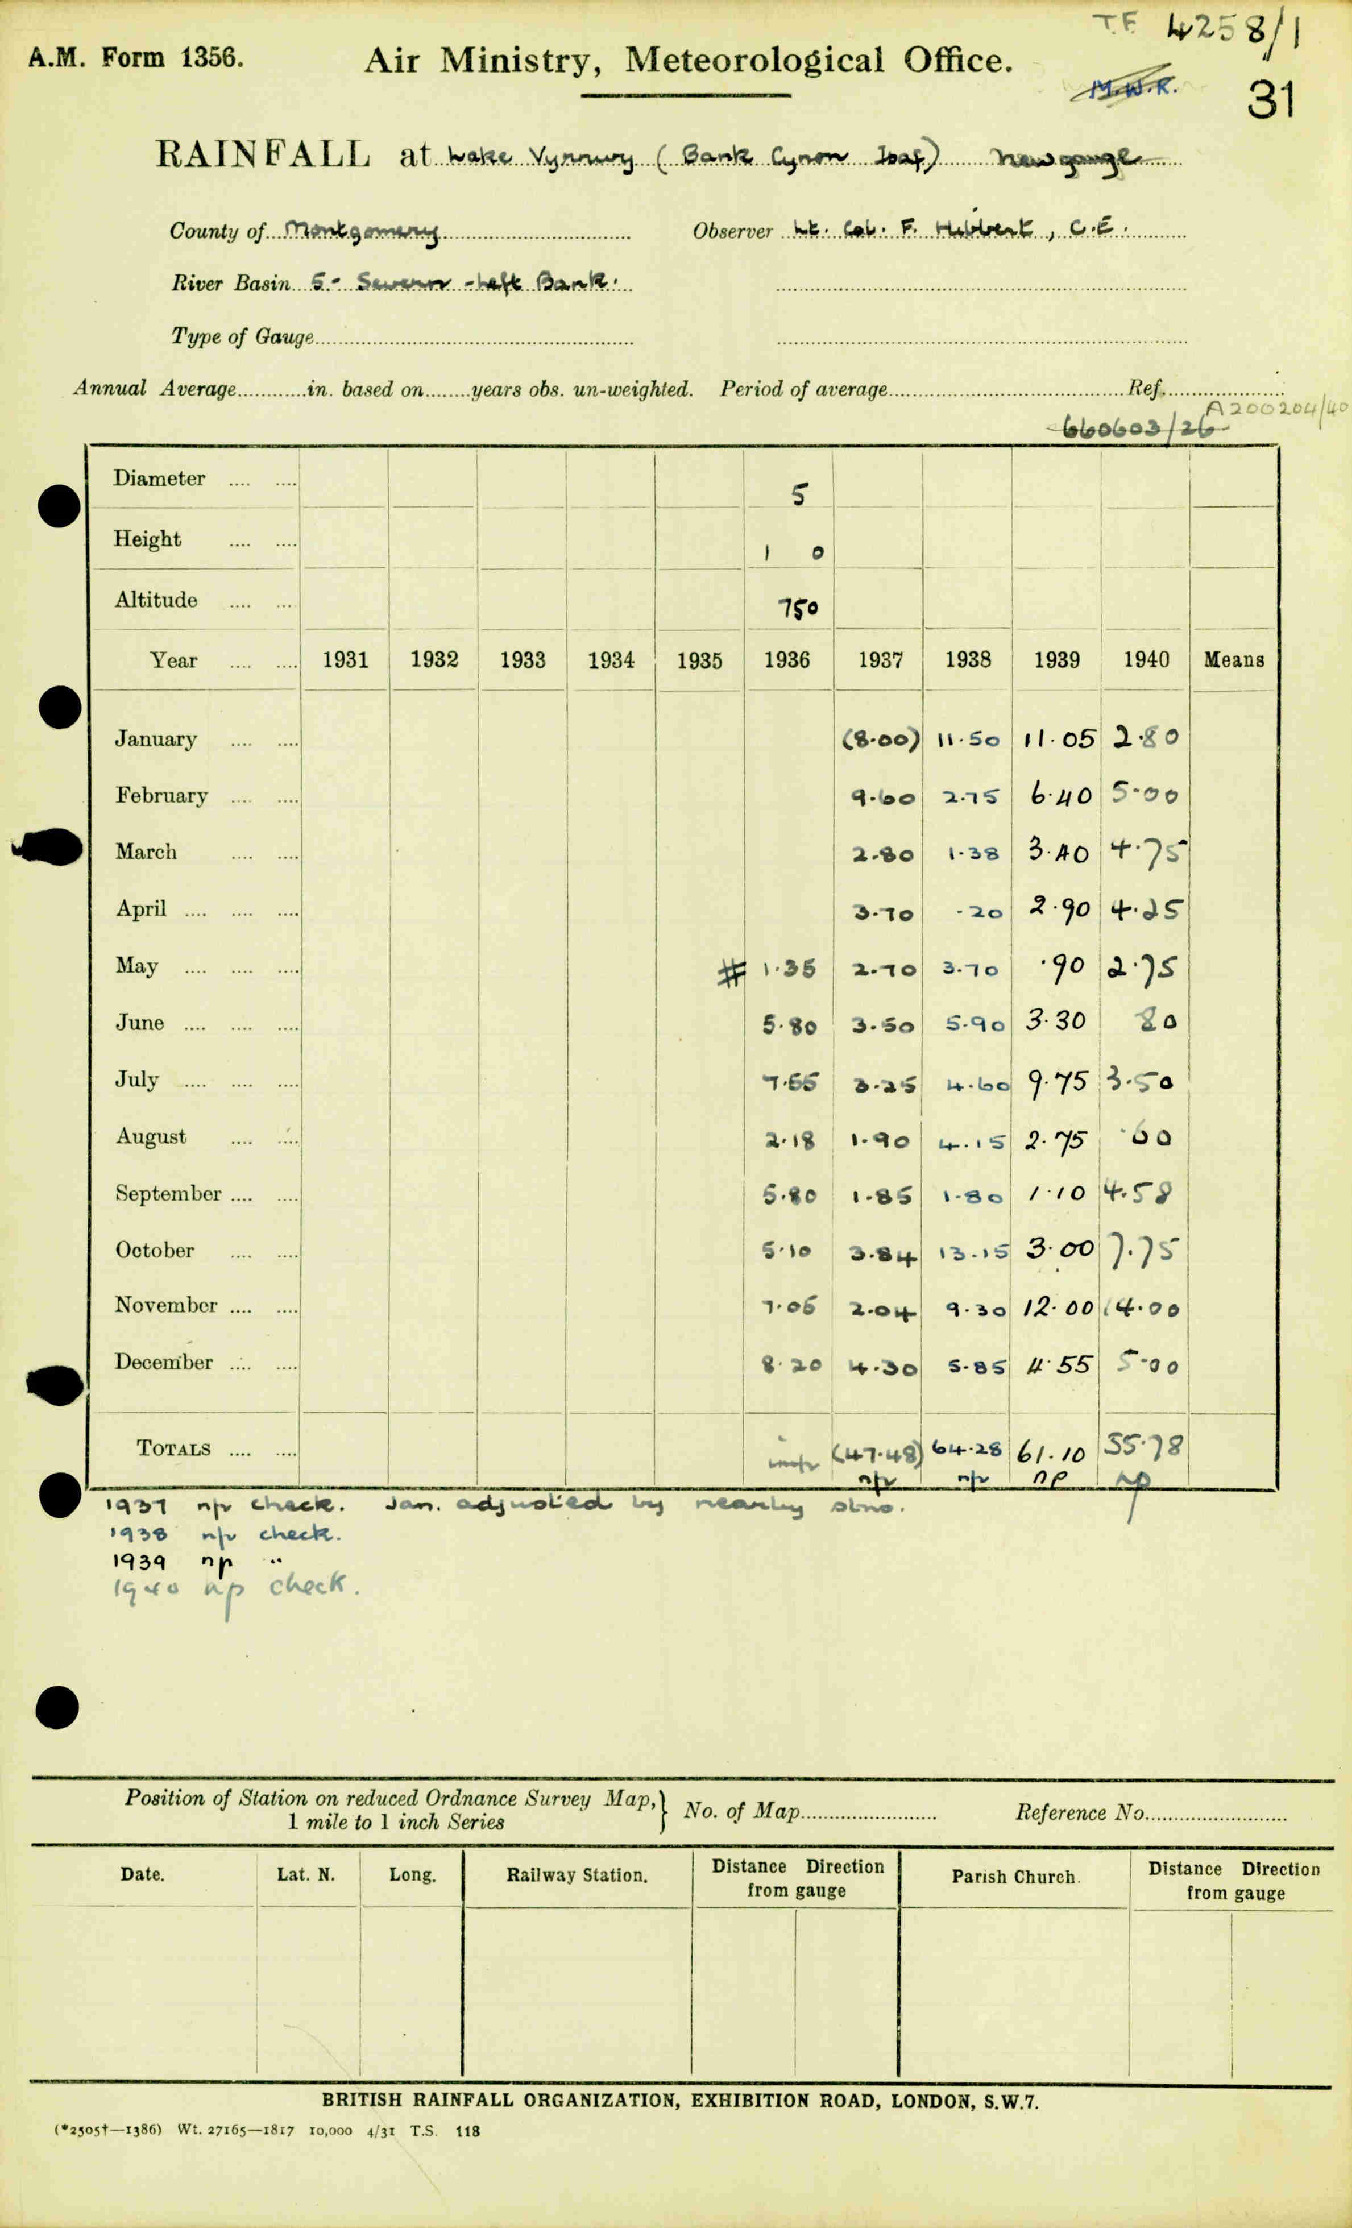 T.F 4258/1
A.M. Form 1356. Air Ministry, Meteorological Office.
M.W.R. 31
RAINFALL at Lake Vyrnwy (Bank Cynon Isaf) New gauge
County of Montgomery Observer Lt. Col. F. Hibbert, C.E.
River Basin 5- Severn -Left Bank.
Type of Gauge
Annual Average in. based on years obs. un-weighted. Period of average Ref.
A200204/40
660603/26
Diameter 5
Height 1 0
Altitude 750
Year 1931 1932 1933 1934 1935 1936 1937 1938 1939 1940 Means
January (8.00) 11.50 11.05 2.80
February 9.60 2.75 6.40 5.00
March 2.80 1.38 3.40 4.75
April 3.70 .20 2.90 4.25
May # 1.35 2.70 3.70 .90 2.75
June 5.80 3.50 5.90 3.30 80
July 7.55 3.25 4.60 9.75 3.50
August 2.18 1.90 4.15 2.75 .60
September 5.80 1.85 1.80 1.10 4.58
October 5.10 3.84 13.15 3.00 7.75
November 7.05 2.04 9.30 12.00 14.00
December 8.20 4.30 5.85 4.55 5.00
TOTALS imp (47.48) 64.28 61.10 55.78
np np np np
1937 np check. Jan. adjusted by nearby stns.
1938 np check.
1939 np "
1940 np check.
Position of Station on reduced Ordnance Survey Map,} No. of Map Reference No.
1 mile to 1 inch Series
Date. Lat. N. Long. Railway Station. Distance Direction Parish Church. Distance Direction
from gauge from gauge
BRITISH RAINFALL ORGANIZATION, EXHIBITION ROAD, LONDON, S.W.7.
(*2505†—1386) Wt. 27165—1817 10,000 4/31 T.S. 118